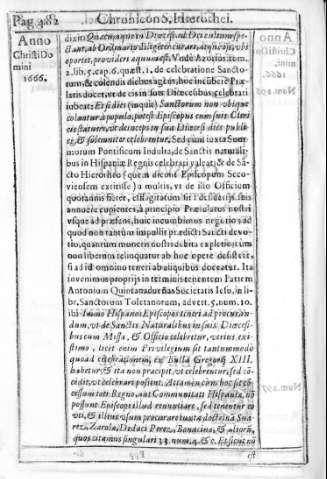 Pag. 482 Chronicon S. Hierothei.
Anno
Christi Do
mini
1666.
dixin Quacumque in Diœcesi, ad Deicultum
tant, ab Ordinarijs diligenter curare, atque vbi, vbi
oportet, provideri æquum est. Vnde Azorius tom.
2. lib. 5. cap. 6. quæst. 1. de celebratione Sancto-
rum, & colendis diebus, hoc incubere Præ-
latis docet, vt de
iubeat: Et si dies (inquit) Sanctorum non vbique
colantur à populo, potest Episcopus cum suis Cleri
cis statuere, vt de incepto in sua Diœcesi dies publi-
cè, & solemniter celebretur. Sed cum iuxta Sum-
morum Pontificum Indulta, de Sanctis naturali-
bus in Hispaniæ Regnis celebrari valeat; & de Sā-
cto Hierotheo (quem dicunt Episcopum Secco-
viensem extitisse) a multis, vt de illo Officium
quotannis fieret, efflagitatum sit:
annuere cupientes, à principio Prælatus nostri
vsque ad præsens, huic incumbimus negotio; ad
quod non tantum impulit prædicti Sancti devo-
tio, quantum muneris nostri debita expletio: cùm
non liberum relinquatur ab hoc opere desistere,
si ad id omnino teneri ab aliquibus doceatur. Ita
invenimus proprijs in terminis tenentem Patrem
Antonium Quintanadueñas Societatis Iesu, in li-
br. Sanctorum Toletanorum, advert. 5. num. 10.
ibi: Immo Hispanos Episcopos teneri ad procuran-
dum, vt de Sanctis Naturalibus in suis Diœcesi-
bus cum Missa, & Officio celebretur, verius exi-
stimo, licet enim Privilegium sit tantummodo
quoad celebrationem, ex Bulla Gregorij XIII.
habetur, & ita non præcipit, vt celebretur, sed cō-
cedit, vt celebrari possint. Attamen cùm hoc sit cō-
cessum toti Regno, aut Communitati Hispanæ, nō
possunt Episcopi illud renuntiare, sed tenentur eo
vti, & illius vsum procurare iuxta doctrinā Sua-
rez, Zarola, Duduci Perez, Bonacina, & aliorū,
quos citamus singulari 33. num. 4. & 6. Et sicut nō
est